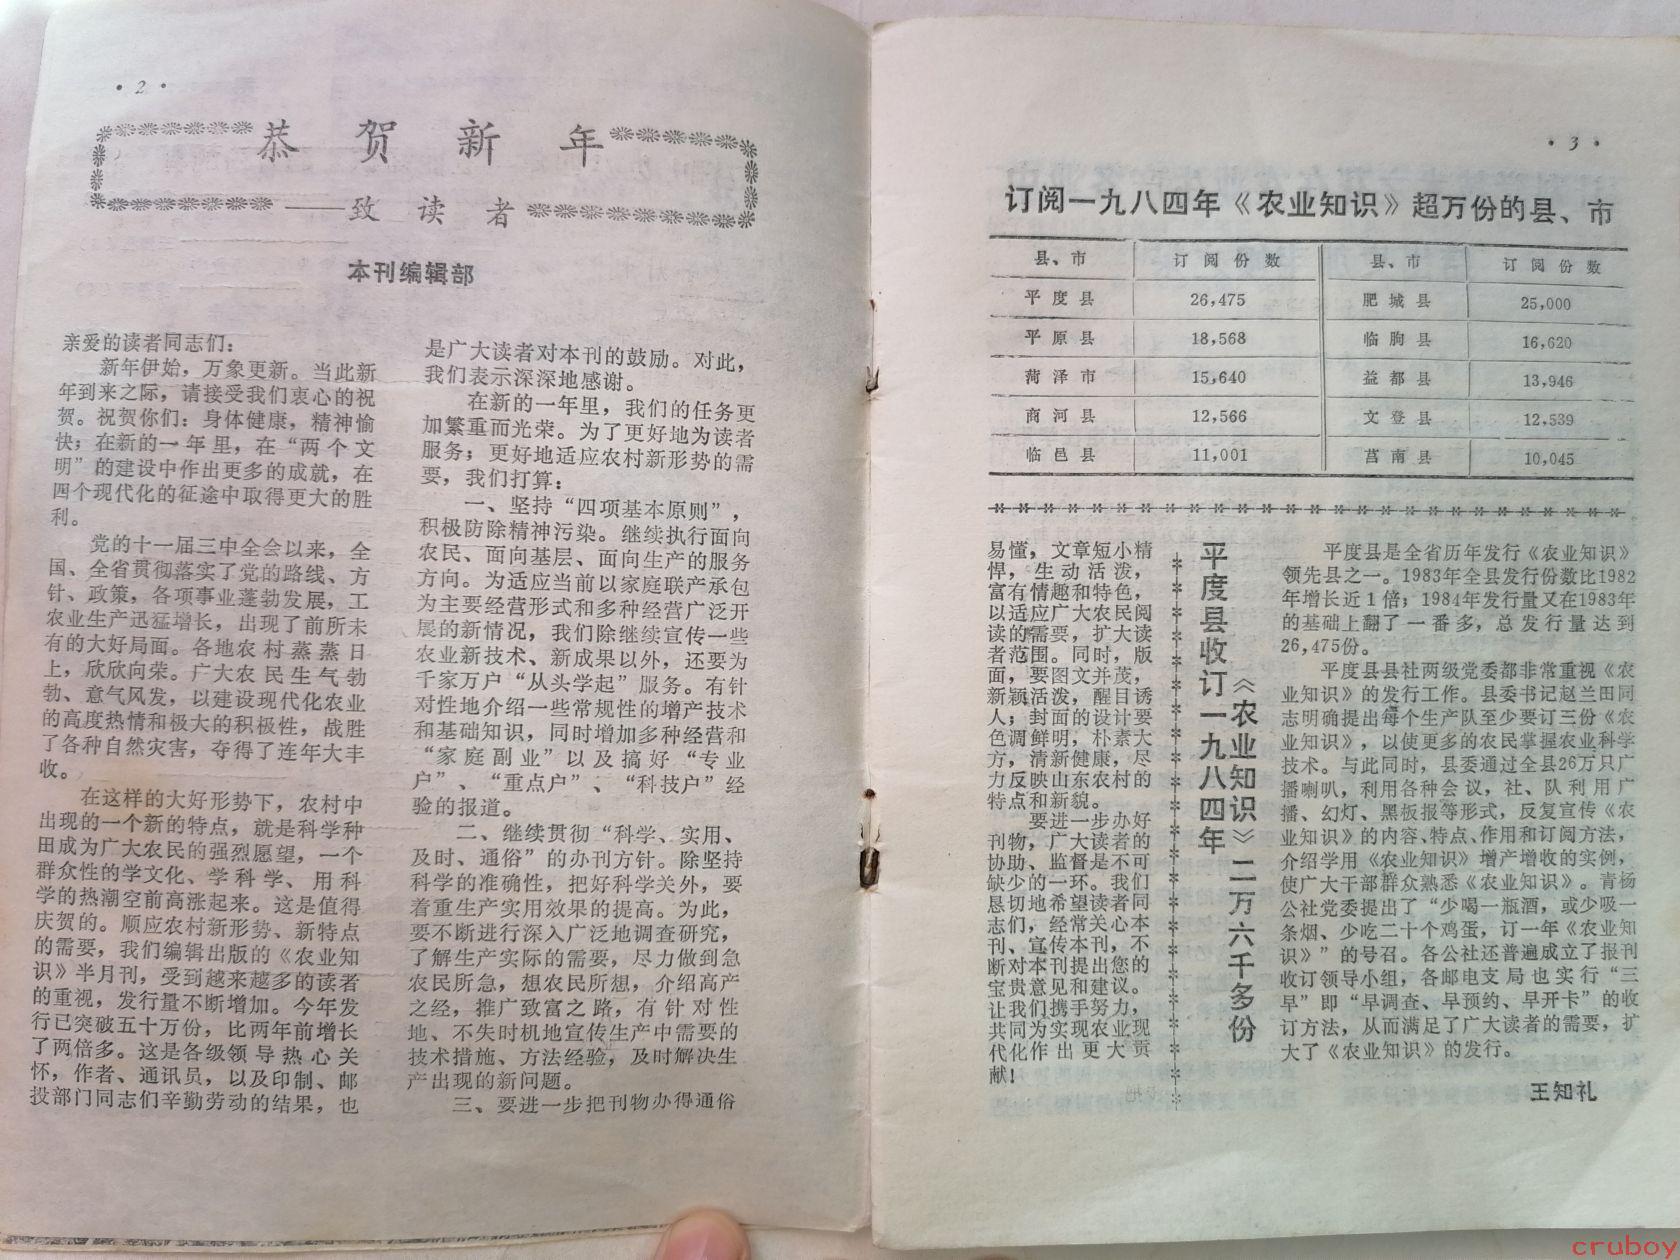 • 2 •
恭贺新年
——致读者
本刊编辑部
亲爱的读者同志们：
新年伊始，万象更新。当此新
年到来之际，请接受我们衷心的祝
贺。祝贺你们：身体健康，精神愉
快；在新的一年里，在“两个文
明”的建设中作出更多的成就，在
四个现代化的征途中取得更大的胜
利。
党的十一届三中全会以来，全
国、全省贯彻落实了党的路线、方
针、政策，各项事业蓬勃发展，工
农业生产迅猛增长，出现了前所未
有的大好局面。各地农村蒸蒸日
上，欣欣向荣。广大农民生气勃
勃、意气风发，以建设现代化农业
的高度热情和极大的积极性，战胜
了各种自然灾害，夺得了连年大丰
收。
在这样的大好形势下，农村中
出现的一个新的特点，就是科学种
田成为广大农民的强烈愿望，一个
群众性的学文化、学科学、用科
学的热潮空前高涨起来。这是值得
庆贺的。顺应农村新形势、新特点
的需要，我们编辑出版的《农业知
识》半月刊，受到越来越多的读者
的重视，发行量不断增加。今年发
行已突破五十万份，比两年前增长
了两倍多。这是各级领导热心关
怀，作者、通讯员，以及印制、邮
投部门同志们辛勤劳动的结果，也
是广大读者对本刊的鼓励。对此，
我们表示深深地感谢。
在新的一年里，我们的任务更
加繁重而光荣。为了更好地为读者
服务；更好地适应农村新形势的需
要，我们打算：
一、坚持“四项基本原则”，
积极防除精神污染。继续执行面向
农民、面向基层、面向生产的服务
方向。为适应当前以家庭联产承包
为主要经营形式和多种经营广泛开
展的新情况，我们除继续宣传一些
农业新技术、新成果以外，还要为
千家万户“从头学起”服务。有针
对性地介绍一些常规性的增产技术
和基础知识，同时增加多种经营和
“家庭副业”以及搞好“专业
户”、“重点户”、“科技户”经
验的报道。
二、继续贯彻“科学、实用、
及时、通俗”的办刊方针。除坚持
科学的准确性，把好科学关外，要
着重生产实用效果的提高。为此，
要不断进行深入广泛地调查研究，
了解生产实际的需要，尽力做到急
农民所急，想农民所想，介绍高产
之经，推广致富之路，有针对性
地、不失时机地宣传生产中需要的
技术措施、方法经验，及时解决生
产出现的新问题。
三、要进一步把刊物办得通俗
• 3 •
订阅一九八四年《农业知识》超万份的县、市
县、市 订阅份数 县、市 订阅份数
平度县 26,475 肥城县 25,000
平原县 18,568 临朐县 16,620
菏泽市 15,640 益都县 13,946
商河县 12,566 文登县 12,539
临邑县 11,001 莒南县 10,045
易懂，文章短小精
悍，生动活泼，
富有情趣和特色，
以适应广大农民阅
读的需要，扩大读
者范围。同时，版
面，要图文并茂，
新颖活泼，醒目诱
人；封面的设计要
色调鲜明，朴素大
方，清新健康，尽
力反映山东农村的
特点和新貌。
要进一步办好
刊物，广大读者的
协助、监督是不可
缺少的一环。我们
恳切地希望读者同
志们，经常关心本
刊、宣传本刊，不
断对本刊提出您的
宝贵意见和建议。
让我们携手努力，
共同为实现农业现
代化作出更大贡
献！
平度县收订一九八四年
《农业知识》二万六千多份
平度县是全省历年发行《农业知识》
领先县之一。1983年全县发行份数比1982
年增长近1倍；1984年发行量又在1983年
的基础上翻了一番多，总发行量达到
26,475份。
平度县县社两级党委都非常重视《农
业知识》的发行工作。县委书记赵兰田同
志明确提出每个生产队至少要订三份《农
业知识》，以使更多的农民掌握农业科学
技术。与此同时，县委通过全县26万只广
播喇叭，利用各种会议，社、队利用广
播、幻灯、黑板报等形式，反复宣传《农
业知识》的内容、特点、作用和订阅方法，
介绍学用《农业知识》增产增收的实例，
使广大干部群众熟悉《农业知识》。青杨
公社党委提出了“少喝一瓶酒，或少吸一
条烟、少吃二十个鸡蛋，订一年《农业知
识》”的号召。各公社还普遍成立了报刊
收订领导小组，各邮电支局也实行“三
早”即“早调查、早预约、早开卡”的收
订方法，从而满足了广大读者的需要，扩
大了《农业知识》的发行。
王知礼
cruboy